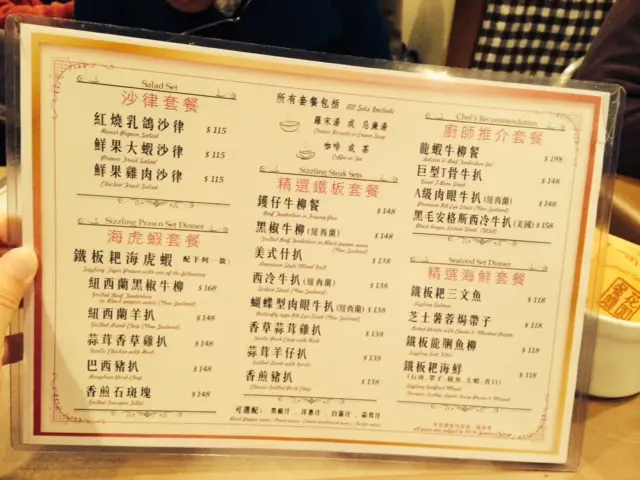 Salad Set
沙律套餐
紅燒乳鴿沙律 $115
Roast Pigeon Salad
鮮果大蝦沙律 $115
Prawn Fruit Salad
鮮果雞肉沙律 $115
Chicken Fruit Salad
Sizzling Prawn Set Dinner
海虎蝦套餐
鐵板耙海虎蝦 配下列一款:
Sizzling Tiger Prawn with one of the following
紐西蘭黑椒牛柳 $168
Grilled Beef Tenderloin
in Black pepper sauce (New Zealand)
紐西蘭羊扒 $148
Grilled Lamb Chop (New Zealand)
蒜茸香草雞扒 $148
Garlic Chicken with Herb
巴西豬扒 $148
香煎石斑塊 $148
Grilled Grouper Fillet
所有套餐包括 All Sets Include
羅宋湯 或 忌廉湯
咖啡 或 茶
Coffee or Tea
Sizzling Steak Sets
精選鐵板套餐
鑊仔牛柳餐 $148
Beef Tenderloin in Frying Pan
黑椒牛柳(紐西蘭) $148
Grilled Beef Tenderloin in Black pepper sauce
(New Zealand)
美式什扒 $148
American Style Mixed Grill
西冷牛扒(紐西蘭) $138
Sirloin Steak (New Zealand)
蝴蝶型肉眼牛扒(紐西蘭) $138
Butterfly type Rib Eye Steak (New Zealand)
香草蒜茸雞扒 $138
Garlic Chicken with Herb
蒜茸羊仔扒 $138
Grilled Lamb with Garlic
香煎豬扒 $138
可選配: 黑椒汁 . 洋蔥汁 . 白菌汁 . 蒜茸汁
Chef's Recommendation
廚師推介套餐
龍蝦牛柳餐 $198
Lobster & Beef Tenderloin Set
巨型T骨牛扒 $148
Giant T-Bone Steak
A級肉眼牛扒(紐西蘭) $148
Premium Rib Eye Steak (New Zealand)
黑毛安格斯西冷牛扒(美國) $158
Black Angus Sirloin Steak (USA)
Seafood Set Dinner
精選海鮮套餐
鐵板耙三文魚 $118
Sizzling Salmon
芝士薯蓉焗帶子 $118
鐵板龍脷魚柳 $118
Sizzling Sole Fillet
鐵板耙海鮮 $118
Sizzling Seafood Mixed